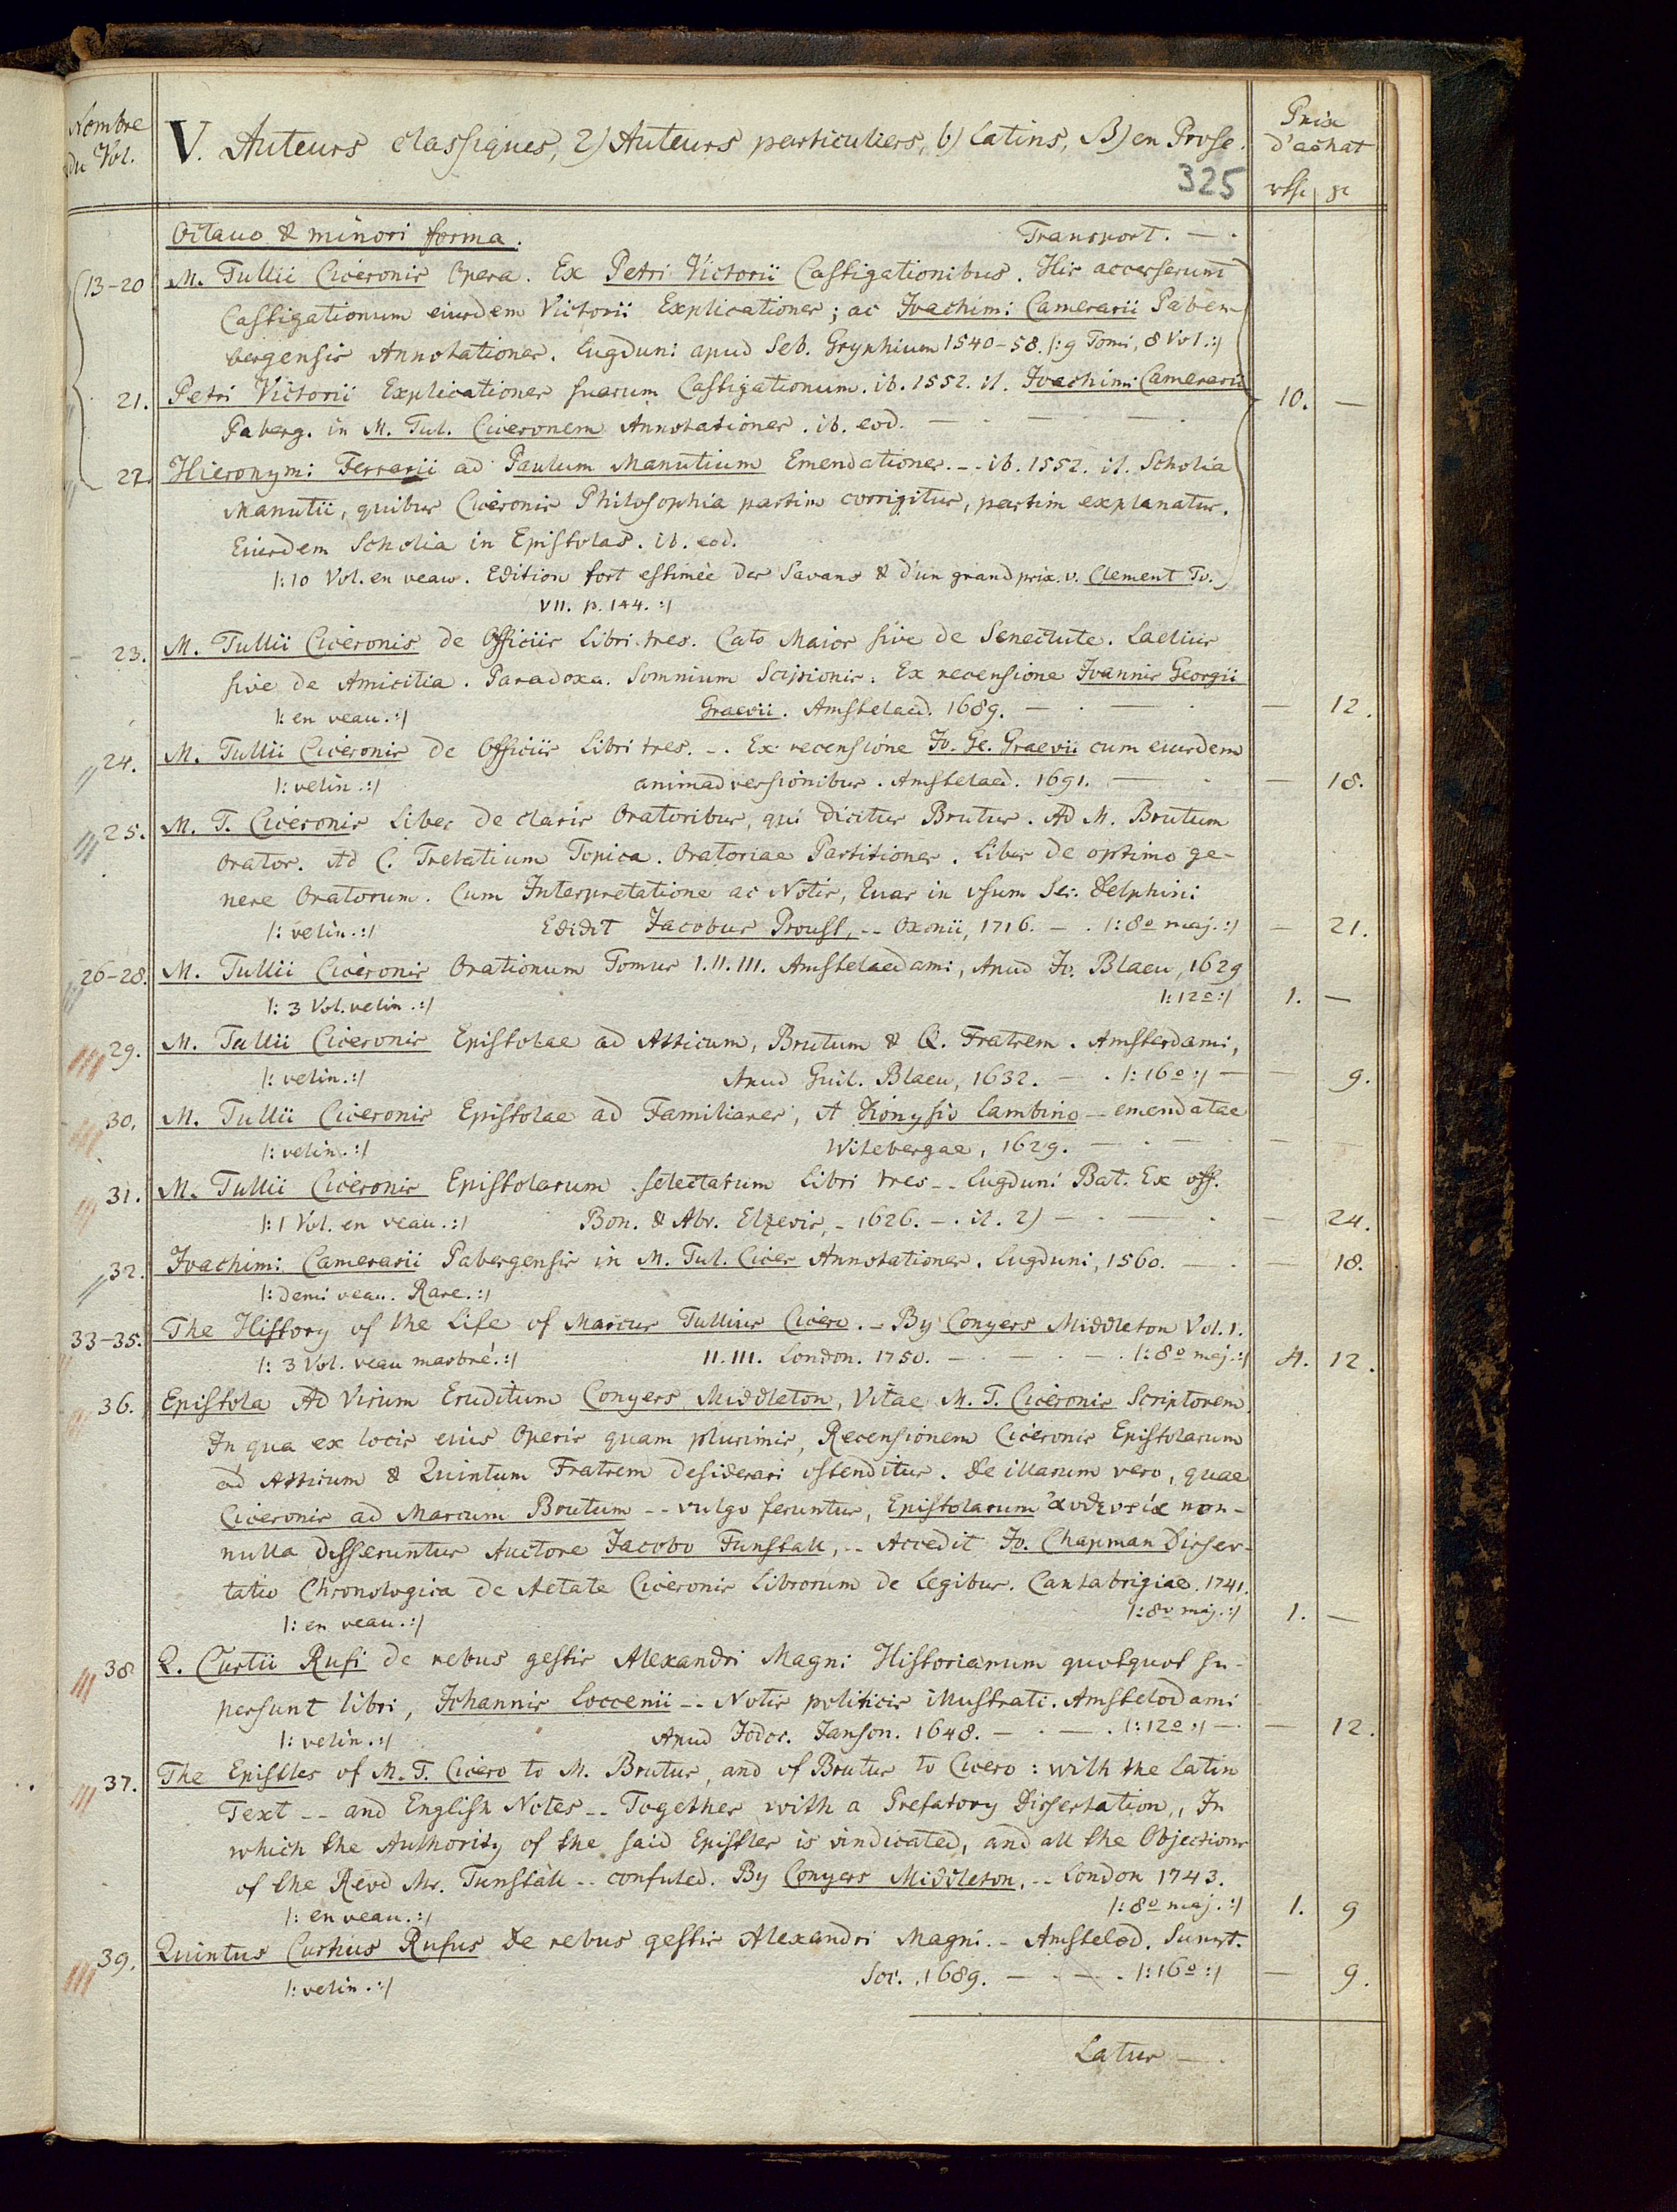 Nombre du Vol.
V. Auteurs classiques, 2) Auteurs particuliers, b) Latins, B) en Prose.
Prix d'achat
325
Octavo & minori forma. Transport. — .
13-20 M. Tullii Ciceronis Opera. Ex Petri Victorii Castigationibus. His accesserunt
Castigationum eiusdem Victorii Explicationes; ac Joachimi Camerarii Paben-
bergensis Annotationes. Lugduni apud Seb. Gryphium 1540-58. |: 9 Tomi, 8 Vol. :|
21. Petri Victorii Explicationes suarum Castigationum. ib. 1552. it. Joachimi Camerarii
Paberg. in M. Tul. Ciceronem Annotationes. ib. eod. — 10. —
22. Hieronymi Ferrarii ad Paulum Manutium Emendationes. -- ib. 1552. it. Scholia
Manutii, quibus Ciceronis Philosophia partim corrigitur, partim explanatur.
Eiusdem Scholia in Epistolas. ib. eod.
|: 10 Vol. en veau. Edition fort estimée des Savans & d'un grand prix. v. Clement To.
VII. p. 144. :|
23. M. Tullii Ciceronis de Officiis Libri tres. Cato Maior sive de Senectute. Laelius
sive de Amicitia. Paradoxa. Somnium Scipionis. Ex recensione Joannis Georgii
|: en veau. :| Graevii. Amstelaed. 1689. — . — . — 12.
24. M. Tullii Ciceronis de Officiis Libri tres. -. Ex recensione Jo. Ge. Graevii cum eiusdem
|: velin. :| animadversionibus. Amstelaed. 1691. — . — 18.
25. M. T. Ciceronis Liber de claris Oratoribus, qui dicitur Brutus. Ad M. Brutum
Orator. Ad C. Trebatium Topica. Oratoriae Partitiones. Liber de optimo ge-
nere Oratorum. Cum Interpretatione ac Notis, quas in usum Ser. Delphini
|: velin. :| Edidit Jacobus Proust, -- Oxonii, 1716. — . |: 8o maj. :| — 21.
26-28. M. Tullii Ciceronis Orationum Tomus I. II. III. Amstelaedami, Apud Jo. Blaeu, 1629
|: 3 Vol. velin. :| |: 12o :| 1. —
29. M. Tullii Ciceronis Epistolae ad Atticum, Brutum & Q. Fratrem. Amsterdami,
|: velin. :| Apud Guil. Blaeu, 1632. — . |: 16o :| — — 9.
30. M. Tullii Ciceronis Epistolae ad Familiares, A Dionysio Lambino -- emendatae
|: velin. :| Witebergae, 1629. — . — . —
31. M. Tullii Ciceronis Epistolarum selectarum Libri tres -- Lugduni Bat. Ex off.
|: 1 Vol. en veau. :| Bon. & Abr. Elzevir, - 1626. — . it. 2) — . — . — 24.
32. Joachimi Camerarii Pabergensis in M. Tul. Cicer Annotationes. Lugduni, 1560. — . — 18.
|: demi veau. Rare. :|
33-35. The History of the Life of Marcus Tullius Cicero. - By Conyers Middleton Vol. I.
|: 3 Vol. veau marbré. :| II. III. London. 1750. — . — . — . |: 8o maj. :| 4. 12.
36. Epistola Ad Virum Eruditum Conyers Middleton, Vitae M. T. Ciceronis Scriptorem.
In qua ex locis eius Operis quam plurimis, Recensionem Ciceronis Epistolarum
ad Atticum & Quintum Fratrem desiderari ostenditur. De illarum vero, quae
Ciceronis ad Marcum Brutum -- vulgo feruntur, Epistolarum αυθεντία non-
nulla disseruntur Auctore Jacobo Tunstall, -- Accedit Jo. Chapman Disser-
tatio Chronologica de Aetate Ciceronis Librorum de Legibus. Cantabrigiae. 1741.
|: en veau. :| |: 8o maj. :| 1. —
38 Q. Curtii Rufi de rebus gestis Alexandri Magni Historiarum quotquot su-
persunt libri, Johannis Loccenii -- Notis politicis illustrati. Amstelodami
|: velin. :| Apud Jodoc. Janson. 1648. — . — . |: 12o :| — . — 12.
37. The Epistles of M. T. Cicero to M. Brutus, and of Brutus to Cicero: with the Latin
Text -- and English Notes -- Together with a Prefatory Dissertation, In
which the Authority of the said Epistles is vindicated, and all the Objections
of the Revd Mr. Tunstall -- confuted. By Conyers Middleton, -- London 1743.
|: en veau. :| |: 8o maj. :| 1. 9
39. Quintus Curtius Rufus De rebus gestis Alexandri Magni. - Amstelod. Sumt.
|: velin. :| Soc. 1689. — . — . |: 16o :| — 9.
Latus — .